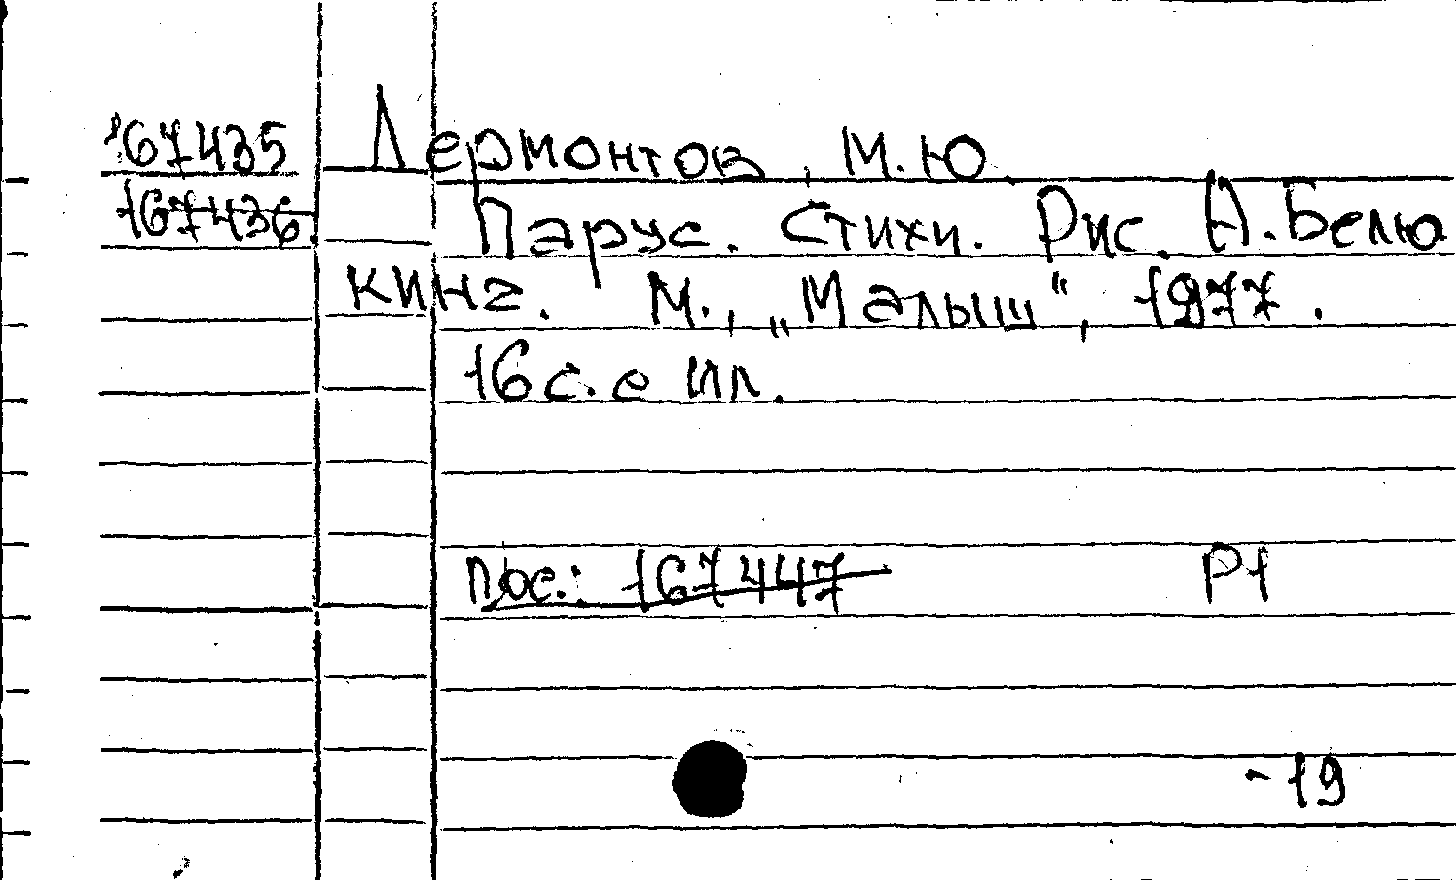 167435 Лермонтов, М.Ю.
167436 Парус. Стихи. Рис. А. Белю
кинг. М., „Малыш“, 1977.
16 с. с ил.
Пос.: 167447 Р1
-19